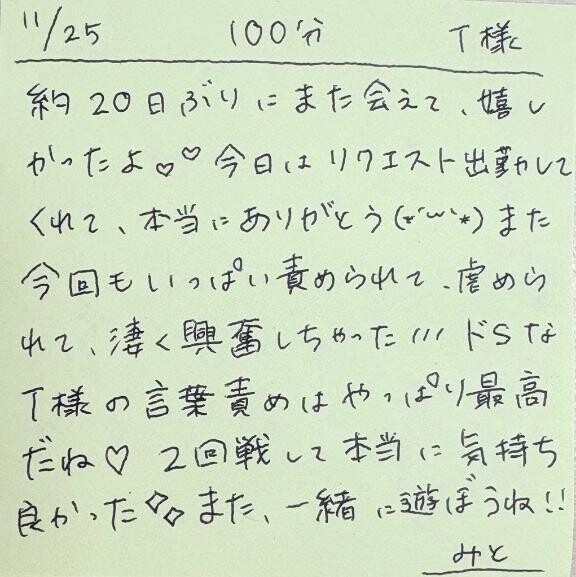 11/25 100分 T様
約20日ぶりにまた会えて、嬉し
かったよ♡♡ 今日はリクエスト出勤して
くれて、本当にありがとう(*´ω`*)また
今回もいっぱい責められて、虐めら
れて、凄く興奮しちゃった/// ドSな
T様の言葉責めはやっぱり最高
だね♡ 2回戦して本当に気持ち
良かった◇◇また、一緒に遊ぼうね!!
みと